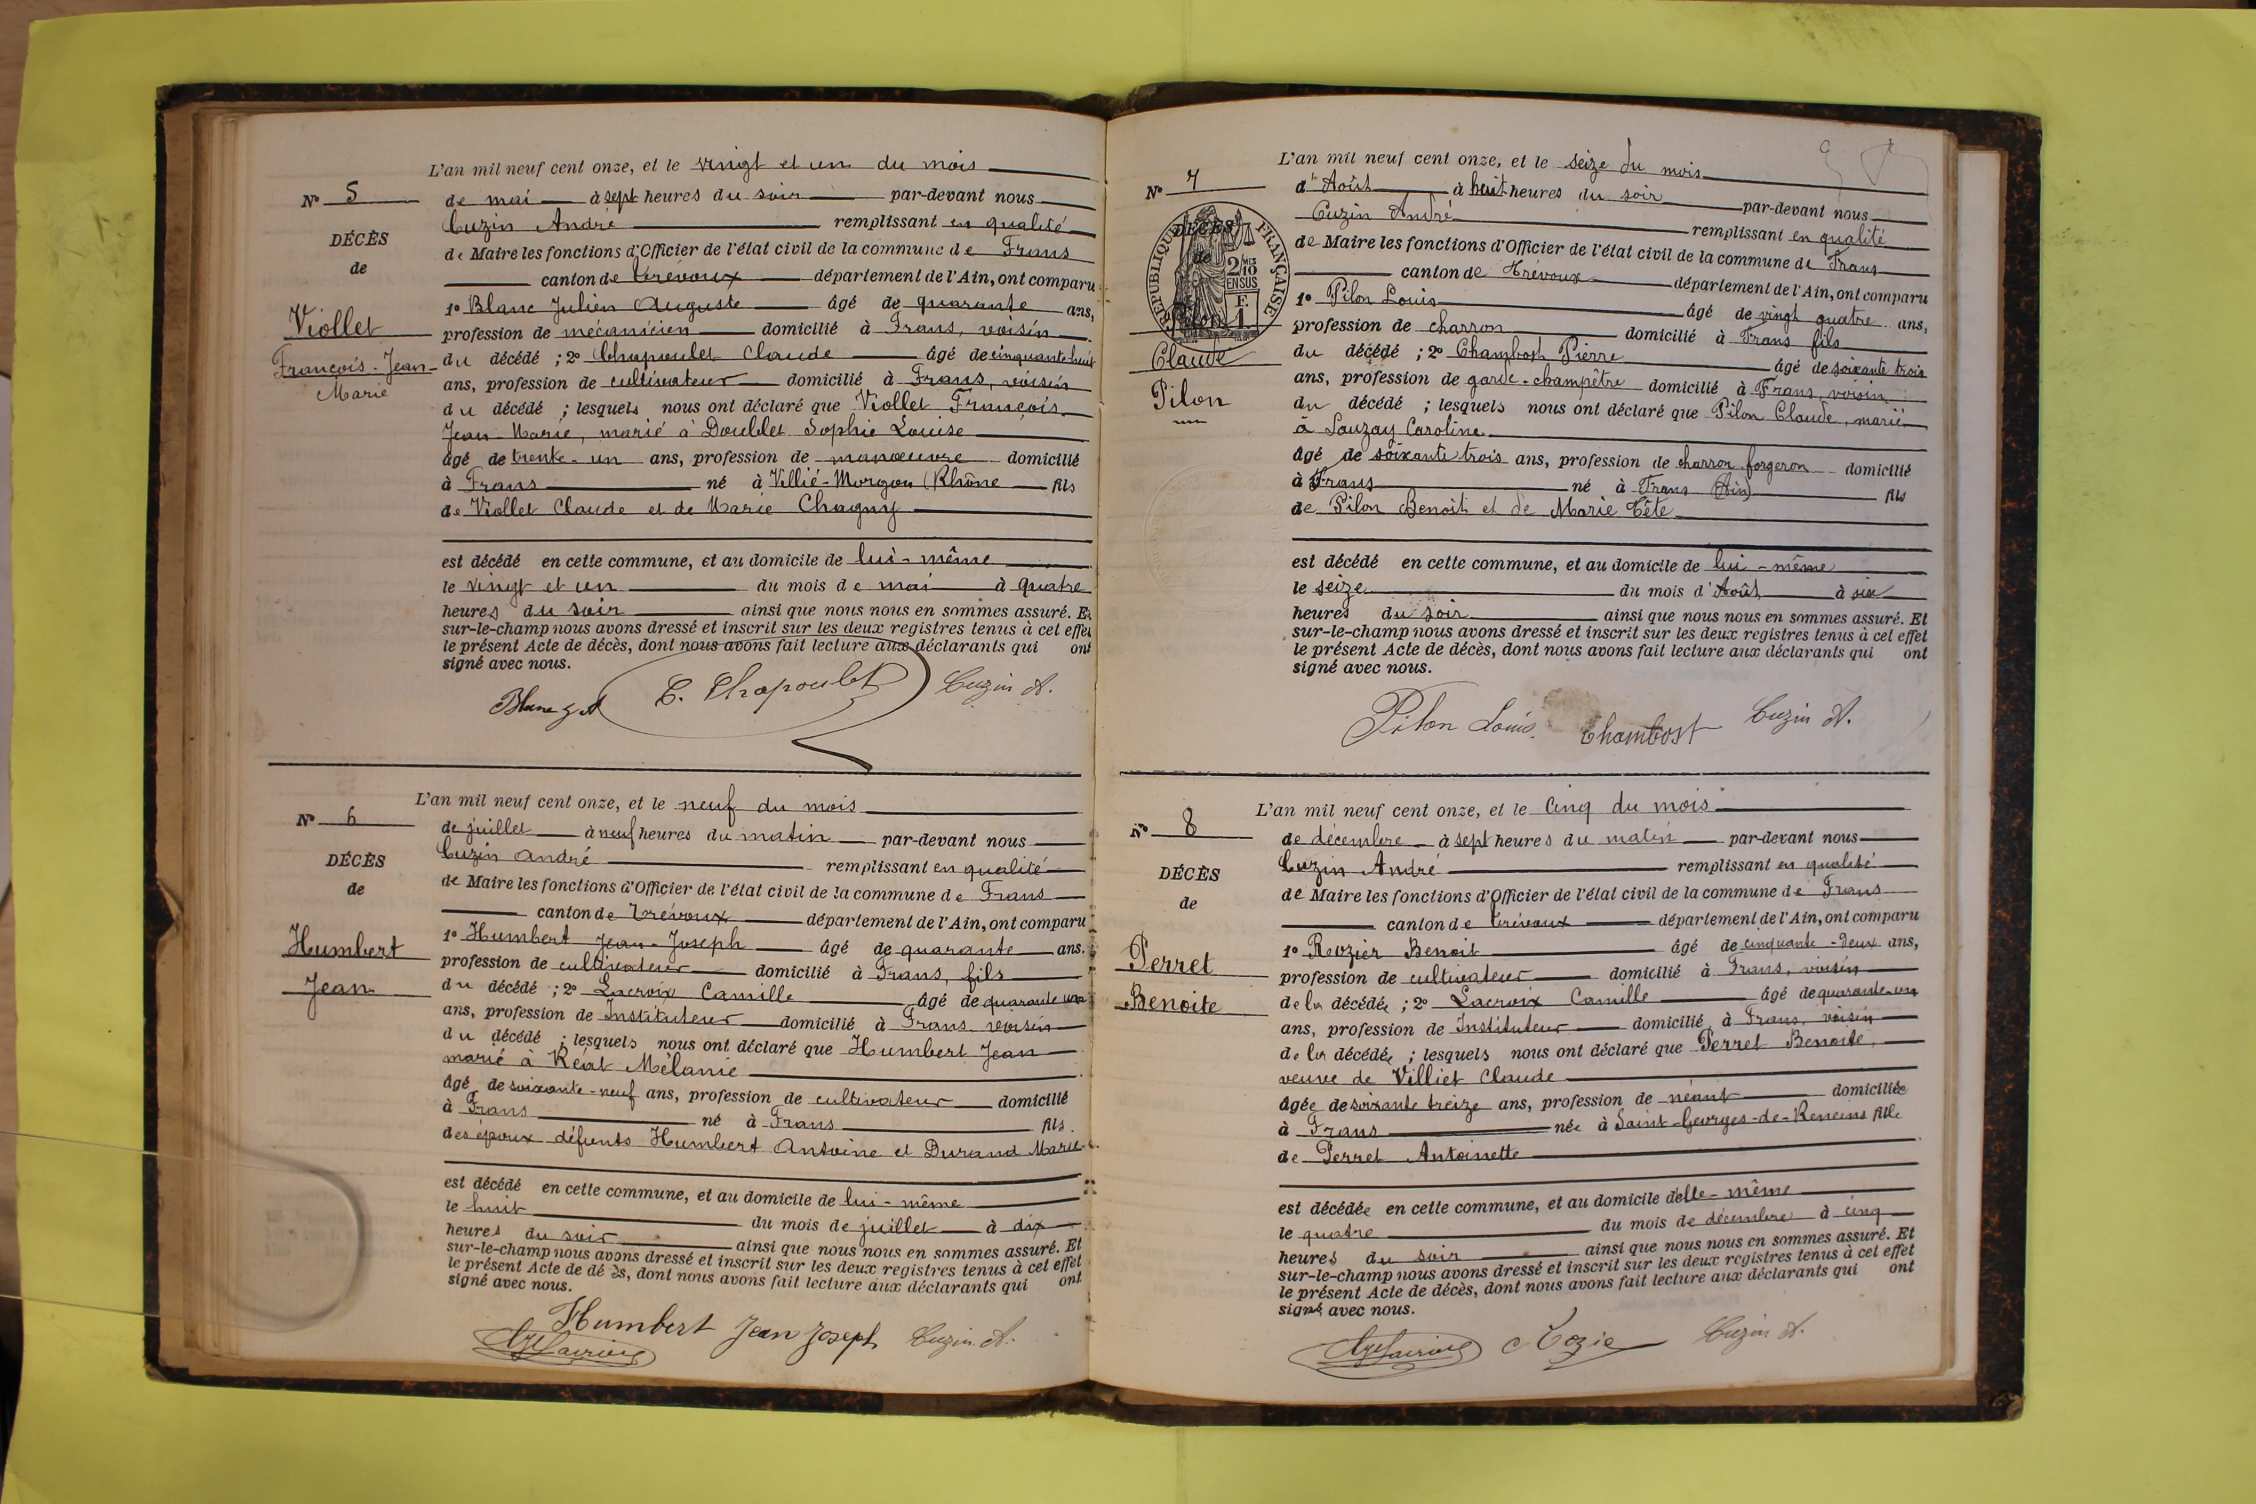 L'an mil neuf cent onze, et le vingt et un du mois
N° 5
de mai à sept heures du soir par-devant nous
Cuzin André remplissant en qualité
DÉCÈS
de Maire les fonctions d'Officier de l'état civil de la commune de Frans
de
canton de Trévoux département de l'Ain, ont comparu
1° Blanc Julien Auguste âgé de quarante ans,
Viollet
profession de mécanicien domicilié à Frans, voisin
François-Jean-
Marie
du décédé ; 2° Chapoulet Claude âgé de cinquante huit
ans, profession de cultivateur domicilié à Frans, voisin
du décédé ; lesquels nous ont déclaré que Viollet François
Jean-Marie, marié à Doublet Sophie Louise
âgé de trente-un ans, profession de manœuvre domicilié
à Frans né à Villié-Morgon (Rhône fils
de Viollet Claude et de Marie Chagny
est décédé en cette commune, et au domicile de lui-même
le vingt et un du mois de mai à quatre
heures du soir ainsi que nous nous en sommes assuré. Et
sur-le-champ nous avons dressé et inscrit sur les deux registres tenus à cet effet
le présent Acte de décès, dont nous avons fait lecture aux déclarants qui ont
signé avec nous.
Blanc C. Chapoulet Cuzin A.
L'an mil neuf cent onze, et le neuf du mois
N° 6
de juillet à neuf heures du matin par-devant nous
Cuzin André remplissant en qualité
DÉCÈS
de Maire les fonctions d'Officier de l'état civil de la commune de Frans
de
canton de Trévoux département de l'Ain, ont comparu
1° Humbert Jean-Joseph âgé de quarante ans.
Humbert
profession de cultivateur domicilié à Frans, fils
Jean
du décédé ; 2° Lacroix Camille âgé de quarante un
ans, profession de Instituteur domicilié à Frans voisin
du décédé ; lesquels nous ont déclaré que Humbert Jean
marié à Réat Mélanie
âgé de soixante-neuf ans, profession de cultivateur domicilié
à Frans né à Frans fils.
des époux défunts Humbert Antoine et Durand Marie
est décédé en cette commune, et au domicile de lui-même
le huit du mois de juillet à dix
heures du soir ainsi que nous nous en sommes assuré. Et
sur-le-champ nous avons dressé et inscrit sur les deux registres tenus à cet effet
le présent Acte de dé ès, dont nous avons fait lecture aux déclarants qui ont
signé avec nous.
Humbert Jean Joseph Cuzin A.
L'an mil neuf cent onze, et le seize du mois
N° 7
d'Août à huit heures du soir par-devant nous
Cuzin André remplissant en qualité
DÉCÈS
de
RÉPUBLIQUE FRANÇAISE
2/10 EN SUS
de Maire les fonctions d'Officier de l'état civil de la commune de Frans
canton de Trévoux département de l'Ain, ont comparu
1° Pilon Louis âgé de vingt quatre ans,
Pilon
profession de charron domicilié à Frans fils
Claude
du décédé ; 2° Chambost Pierre âgé de soixante trois
Pilon
ans, profession de garde-champêtre domicilié à Frans, voisin
du décédé ; lesquels nous ont déclaré que Pilon Claude, marié
à Sauzay Caroline
âgé de soixante trois ans, profession de charron forgeron domicilié
à Frans né à Frans (Ain) fils
de Pilon Benoit et de Marie Tête
est décédé en cette commune, et au domicile de lui-même
le seize du mois d'Août à six
heures du soir ainsi que nous nous en sommes assuré. Et
sur-le-champ nous avons dressé et inscrit sur les deux registres tenus à cet effet
le présent Acte de décès, dont nous avons fait lecture aux déclarants qui ont
signé avec nous.
Pilon Louis. Chambost Cuzin A.
L'an mil neuf cent onze, et le cinq du mois
N° 8
de décembre à sept heures du matin par-devant nous
Cuzin André remplissant en qualité
DÉCÈS
de Maire les fonctions d'Officier de l'état civil de la commune de Frans
de
canton de Trévoux département de l'Ain, ont comparu
1° Rozier Benoit âgé de cinquante-deux ans,
Perret
profession de cultivateur domicilié à Frans, voisin
Benoite
de la décédée ; 2° Lacroix Camille âgé de quarante-un
ans, profession de Instituteur domicilié à Frans, voisin
de la décédée ; lesquels nous ont déclaré que Perret Benoite,
veuve de Villiet Claude
âgée de soixante treize ans, profession de néant domiciliée
à Frans née à Saint-Georges-de-Reneins fille
de Perret Antoinette
est décédée en cette commune, et au domicile d'elle-même
le quatre du mois de décembre à cinq
heures du soir ainsi que nous nous en sommes assuré. Et
sur-le-champ nous avons dressé et inscrit sur les deux registres tenus à cet effet
le présent Acte de décès, dont nous avons fait lecture aux déclarants qui ont
signé avec nous.
Cuzin A.